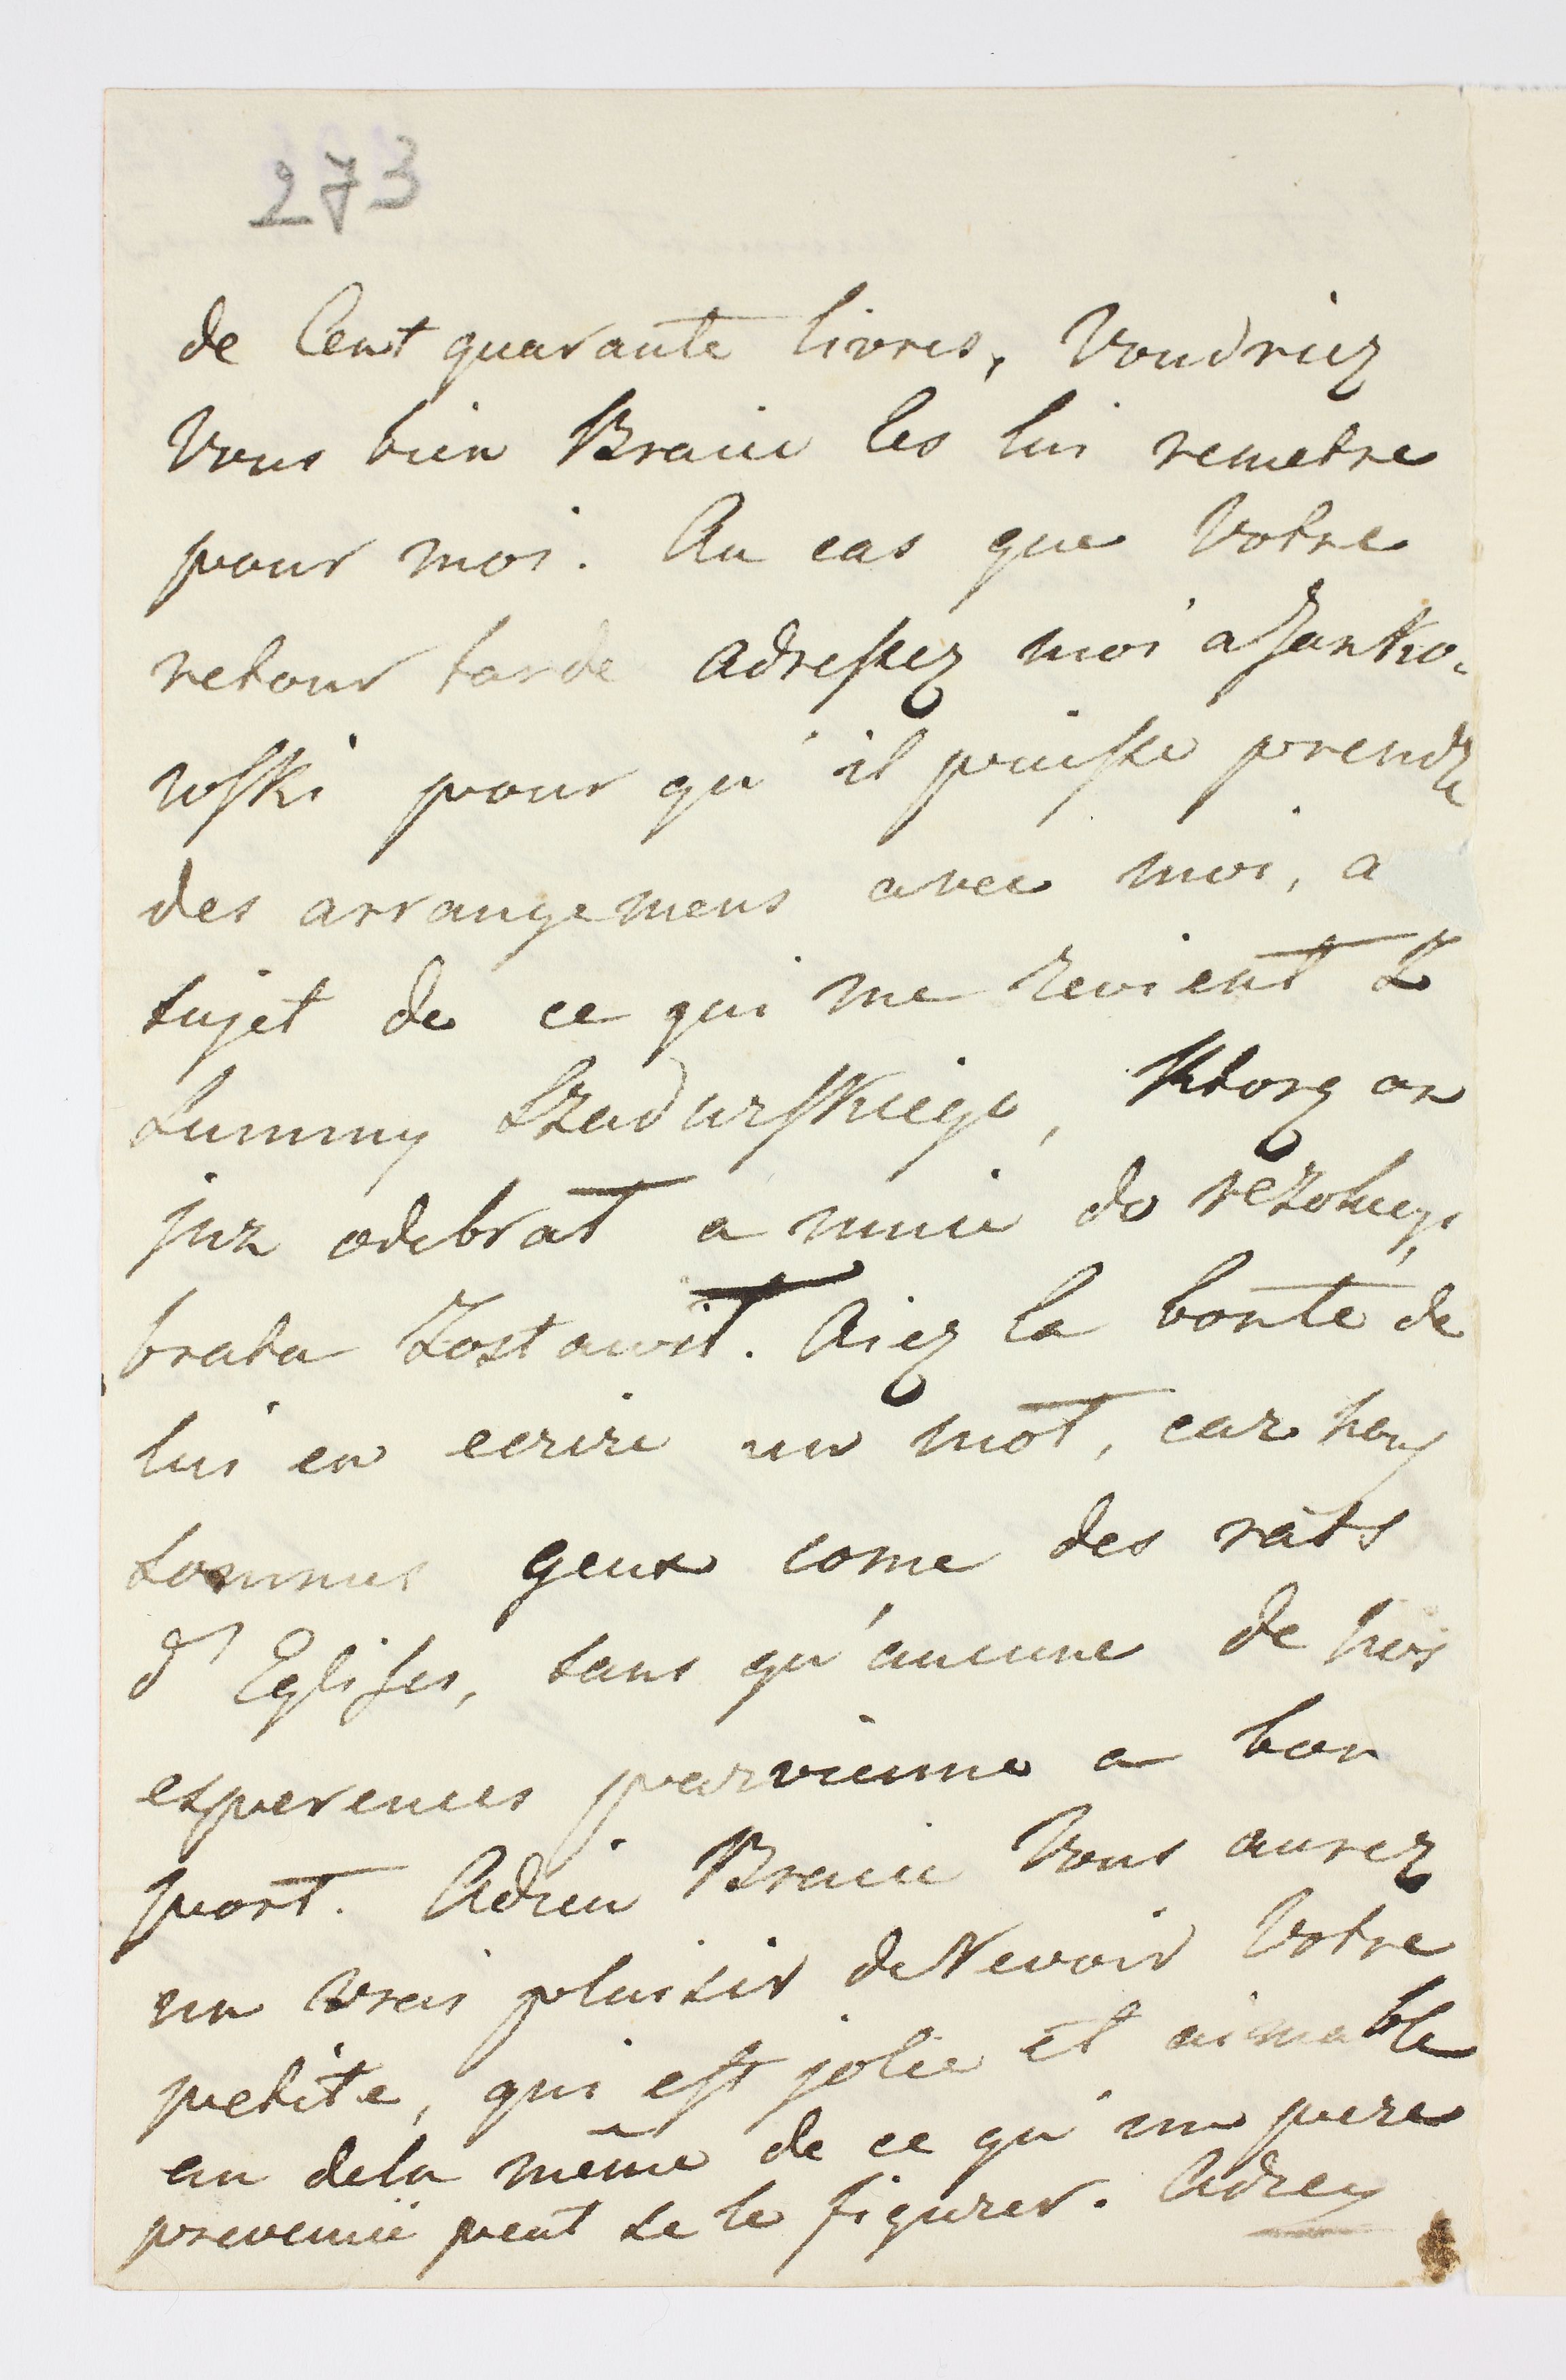 273
de Cent quarante livres, Voudriez
Vous bien Bracie les lui remetre
pour moi. Au cas que Votre
retour tarde adressez moi a Janko-
wski pour qu'il puisse prendre
des arrangemens avec moi, a
sujet de ce qui me revient z
Summy Szadurskiego, Ktorą on
juz odebrał a mnie do rezolucyi
brata Zostawił. Aiez la bonté de
lui en ecrire un mot, car nous
sommes geux come des rats
d'Eglises, sans qu'aucune de nos
esperences parvienne a bon
port. Adieu Bracie Vous aurez
un vrai plaisir de Revoir Votre
petite, qui est jolie et aimable
au dela même de ce qu'un pere
prevenu peut se le figurer. Adieu